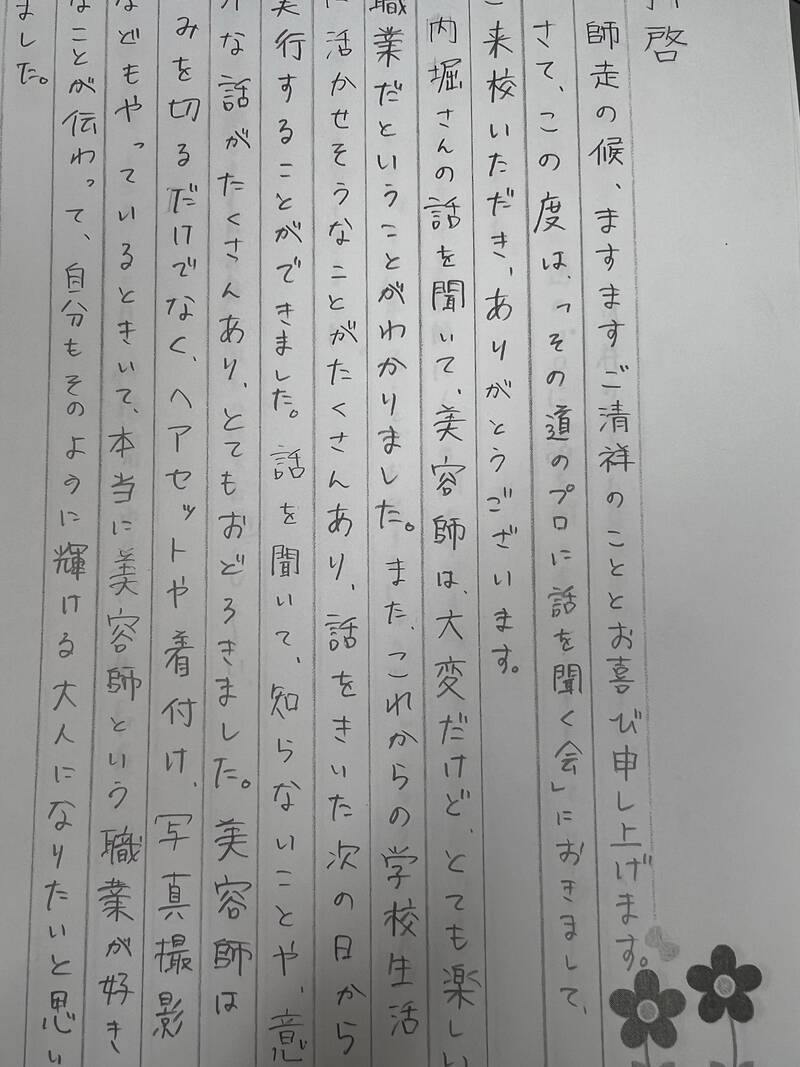 拝啓
師走の候、ますますご清祥のこととお喜び申し上げます。
さて、この度は、「その道のプロに話を聞く会」におきまして、
ご来校いただき、ありがとうございます。
内堀さんの話を聞いて、美容師は、大変だけど、とても楽しい
職業だということがわかりました。また、これからの学校生活
に活かせそうなことがたくさんあり、話をきいた次の日から
実行することができました。話を聞いて、知らないことや、意
外な話がたくさんあり、とてもおどろきました。美容師は
みを切るだけでなく、ヘアセットや着付け、写真撮影
などもやっているときいて、本当に美容師という職業が好き
なことが伝わって、自分もそのように輝ける大人になりたいと思い
ました。